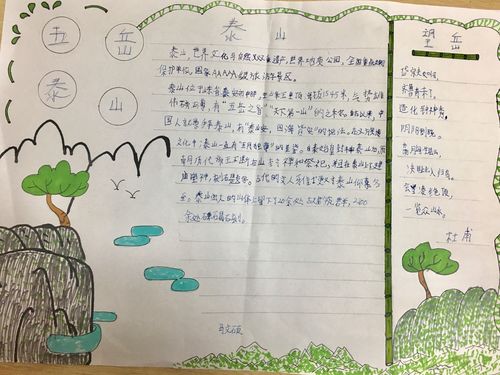 五
岳
泰
山
泰 山
泰山,世界文化与自然双重遗产,世界地质公园,全国重点文物
保护单位,国家AAAAA级旅游景区。
泰山位于山东省泰安市中部,主峰玉皇顶海拔1545米,气势雄
伟磅礴,有“五岳之首”“天下第一山”之称。自古以来,中
国人就崇拜泰山,有“泰山安,四海皆安”的说法,在汉族传统
文化中,泰山一直有“五岳独尊”的美誉。自秦始皇封禅泰山后,历
朝历代帝王不断在泰山封禅和祭祀,并且在泰山上下建
庙塑神,刻石题字。古代的文人雅士
泰山宏大的山体上留下了20余处古建筑群,2200
余处碑碣石刻。
望 岳
岱宗夫如何,
齐鲁青未了。
造化钟神秀,
阴阳割昏晓。
荡胸生层云,
决眦入归鸟。
会当凌绝顶,
一览众山小。
杜甫